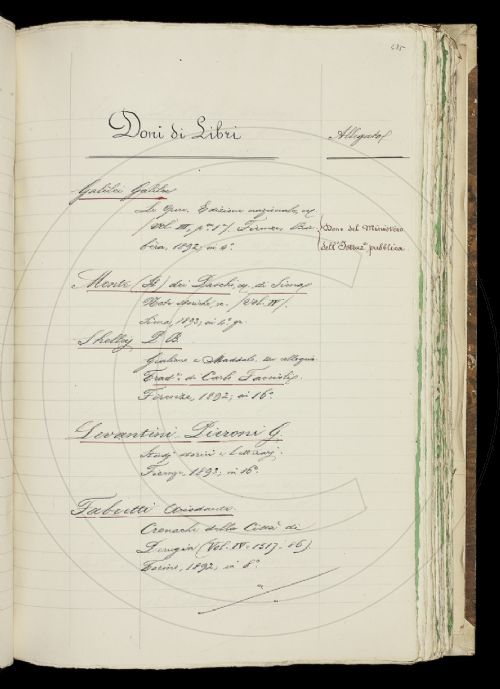 635
Doni di Libri
Allegato
Galilei Galileo
Le Opere. Edizione nazionale, ec
Vol. III, pte 1ª. Firenze, Bar
bèra, 1892, in 4º.
Dono del Ministero
dell'Istruzº pubblica
Monte (Il) dei Paschi, ec. di Siena
Note storiche, ec. (Vol. IV).
Siena, 1893; in 4º gr.
Shelley P. B.
Giuliano e Maddalo.
Tradne di Carlo
Firenze, 1892; in 16º
Levantini Pieroni G.
Studj storici e letterarj.
Firenze, 1893; in 16º.
Fabretti Ariodante
Cronache della Città di
Perugia (Vol. IV = 1517-
Torino, 1892, in 8º.